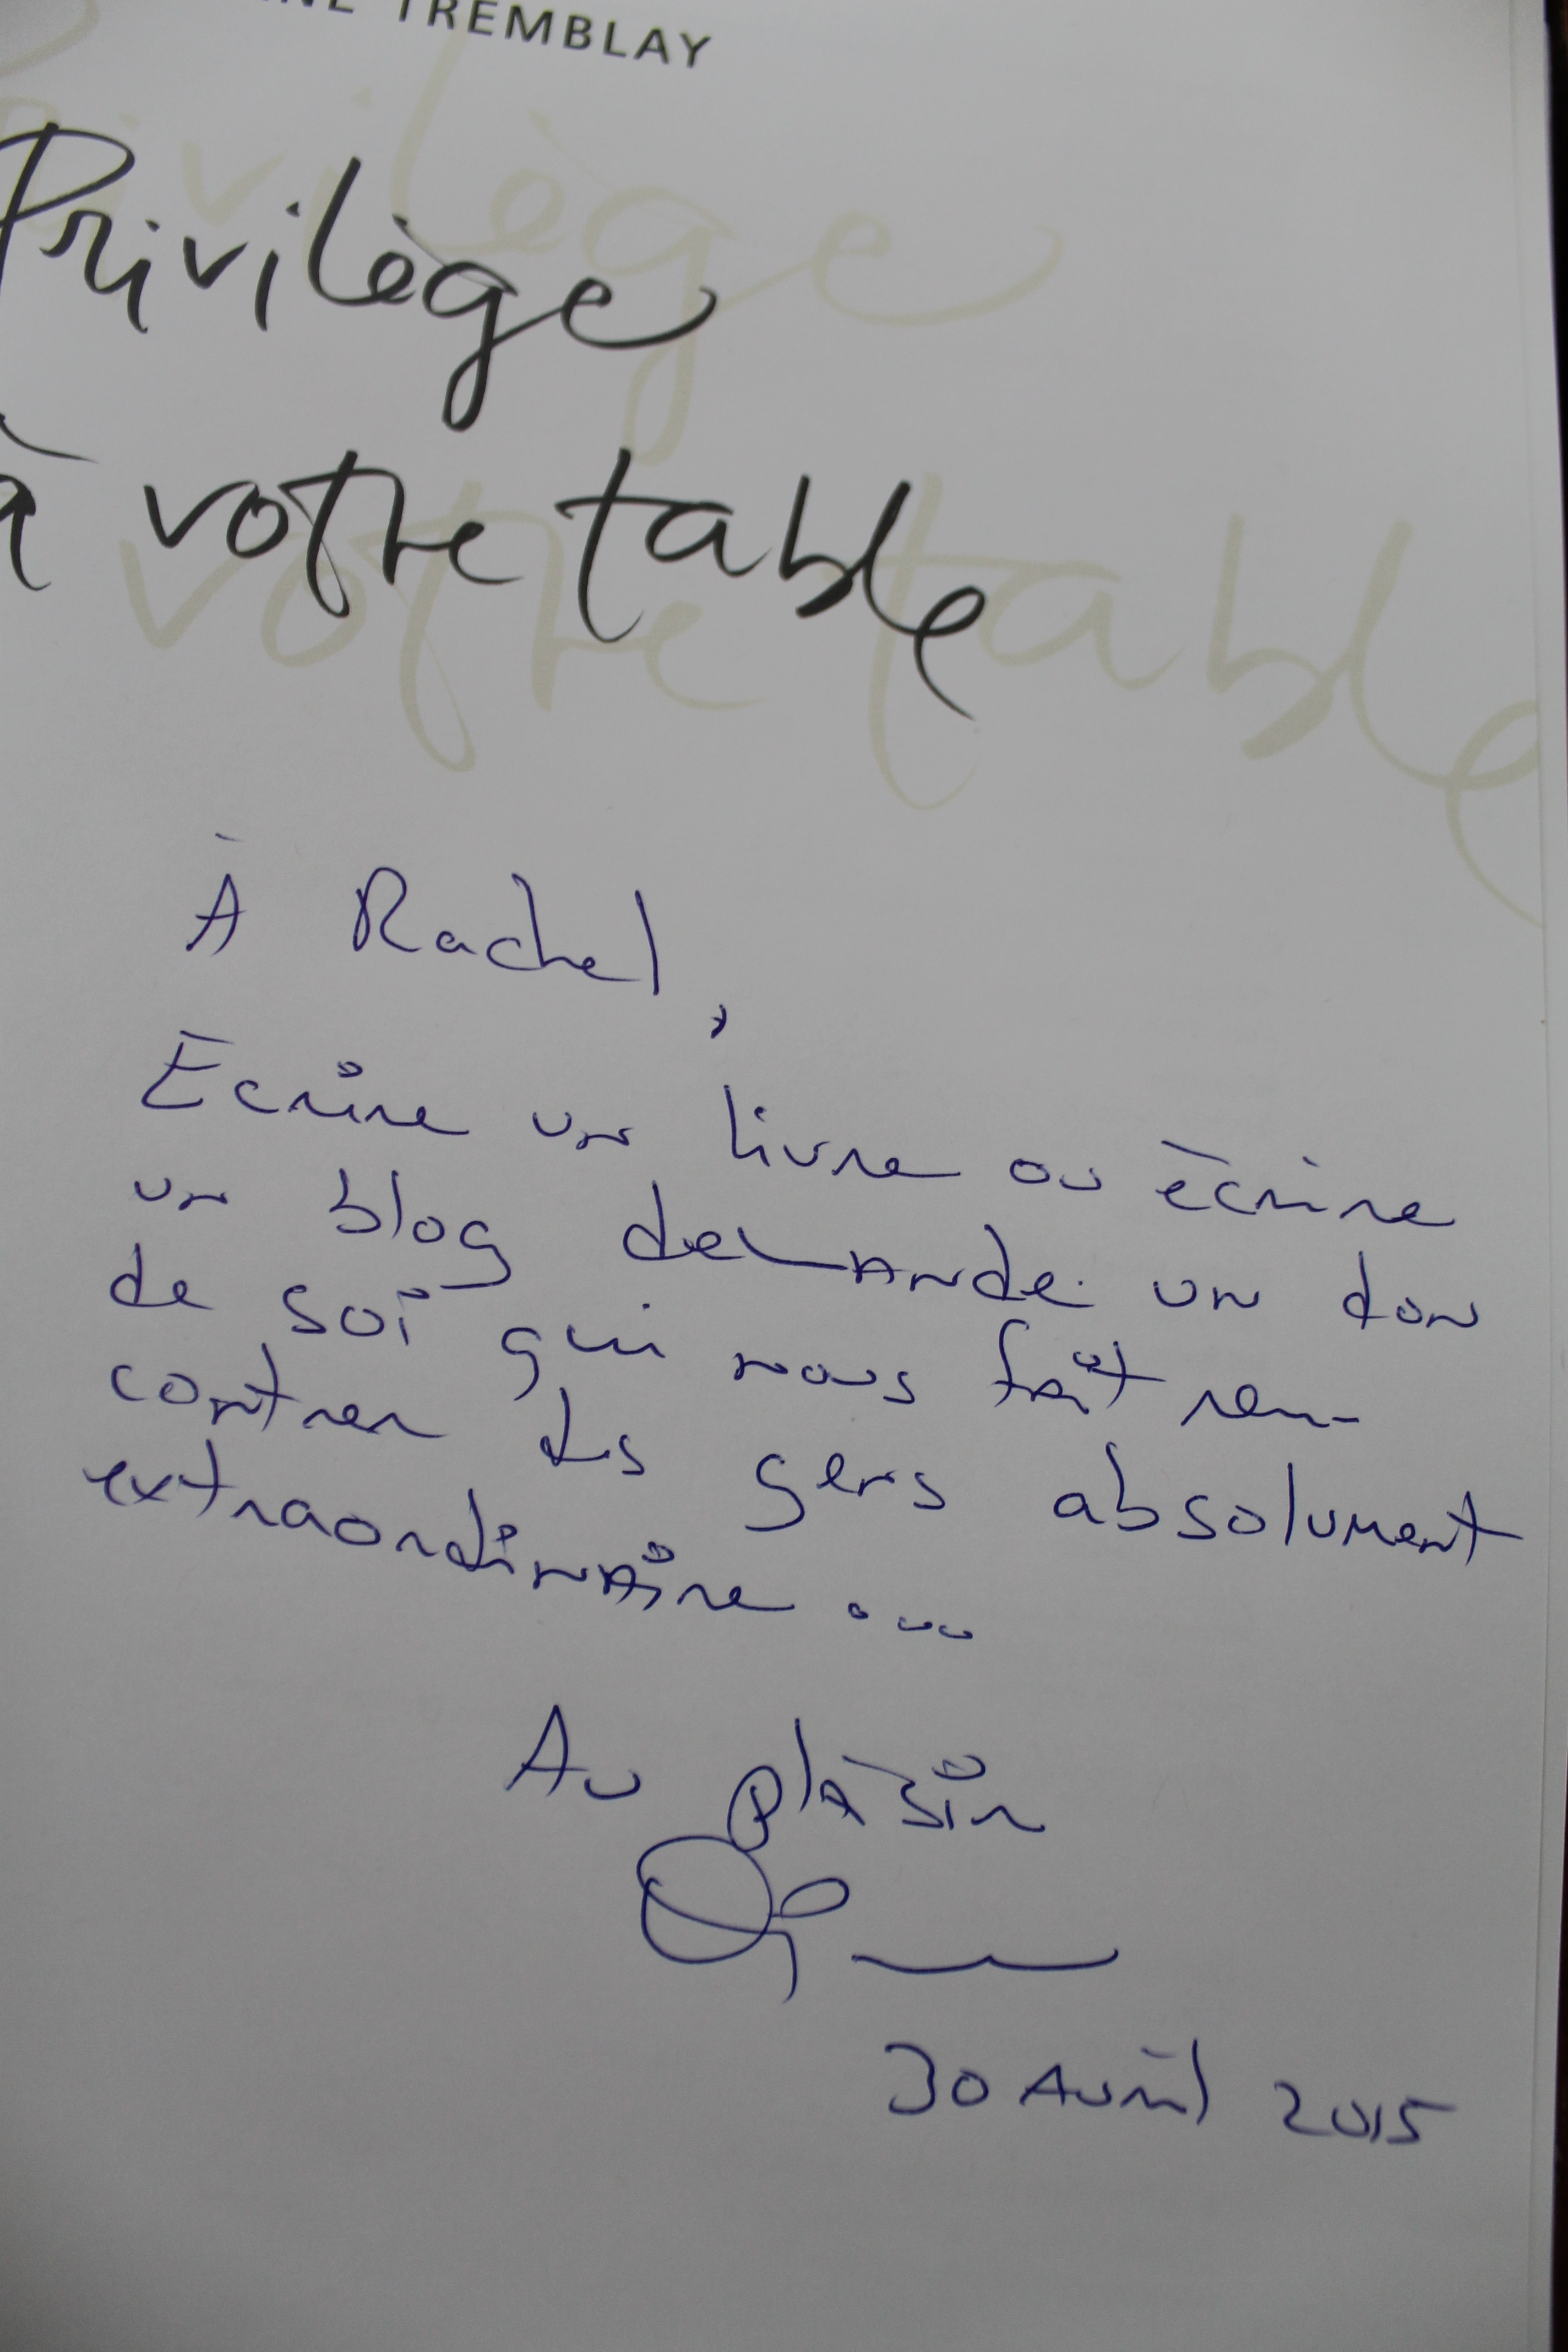 TREMBLAY
Privilège
à votre table
À Rachel,
Écrire un livre ou écrire
un blog demande un don
de soi qui nous fait ren-
contrer des gens absolument
extraordinaire ...
Au plaisir
30 Avril 2015